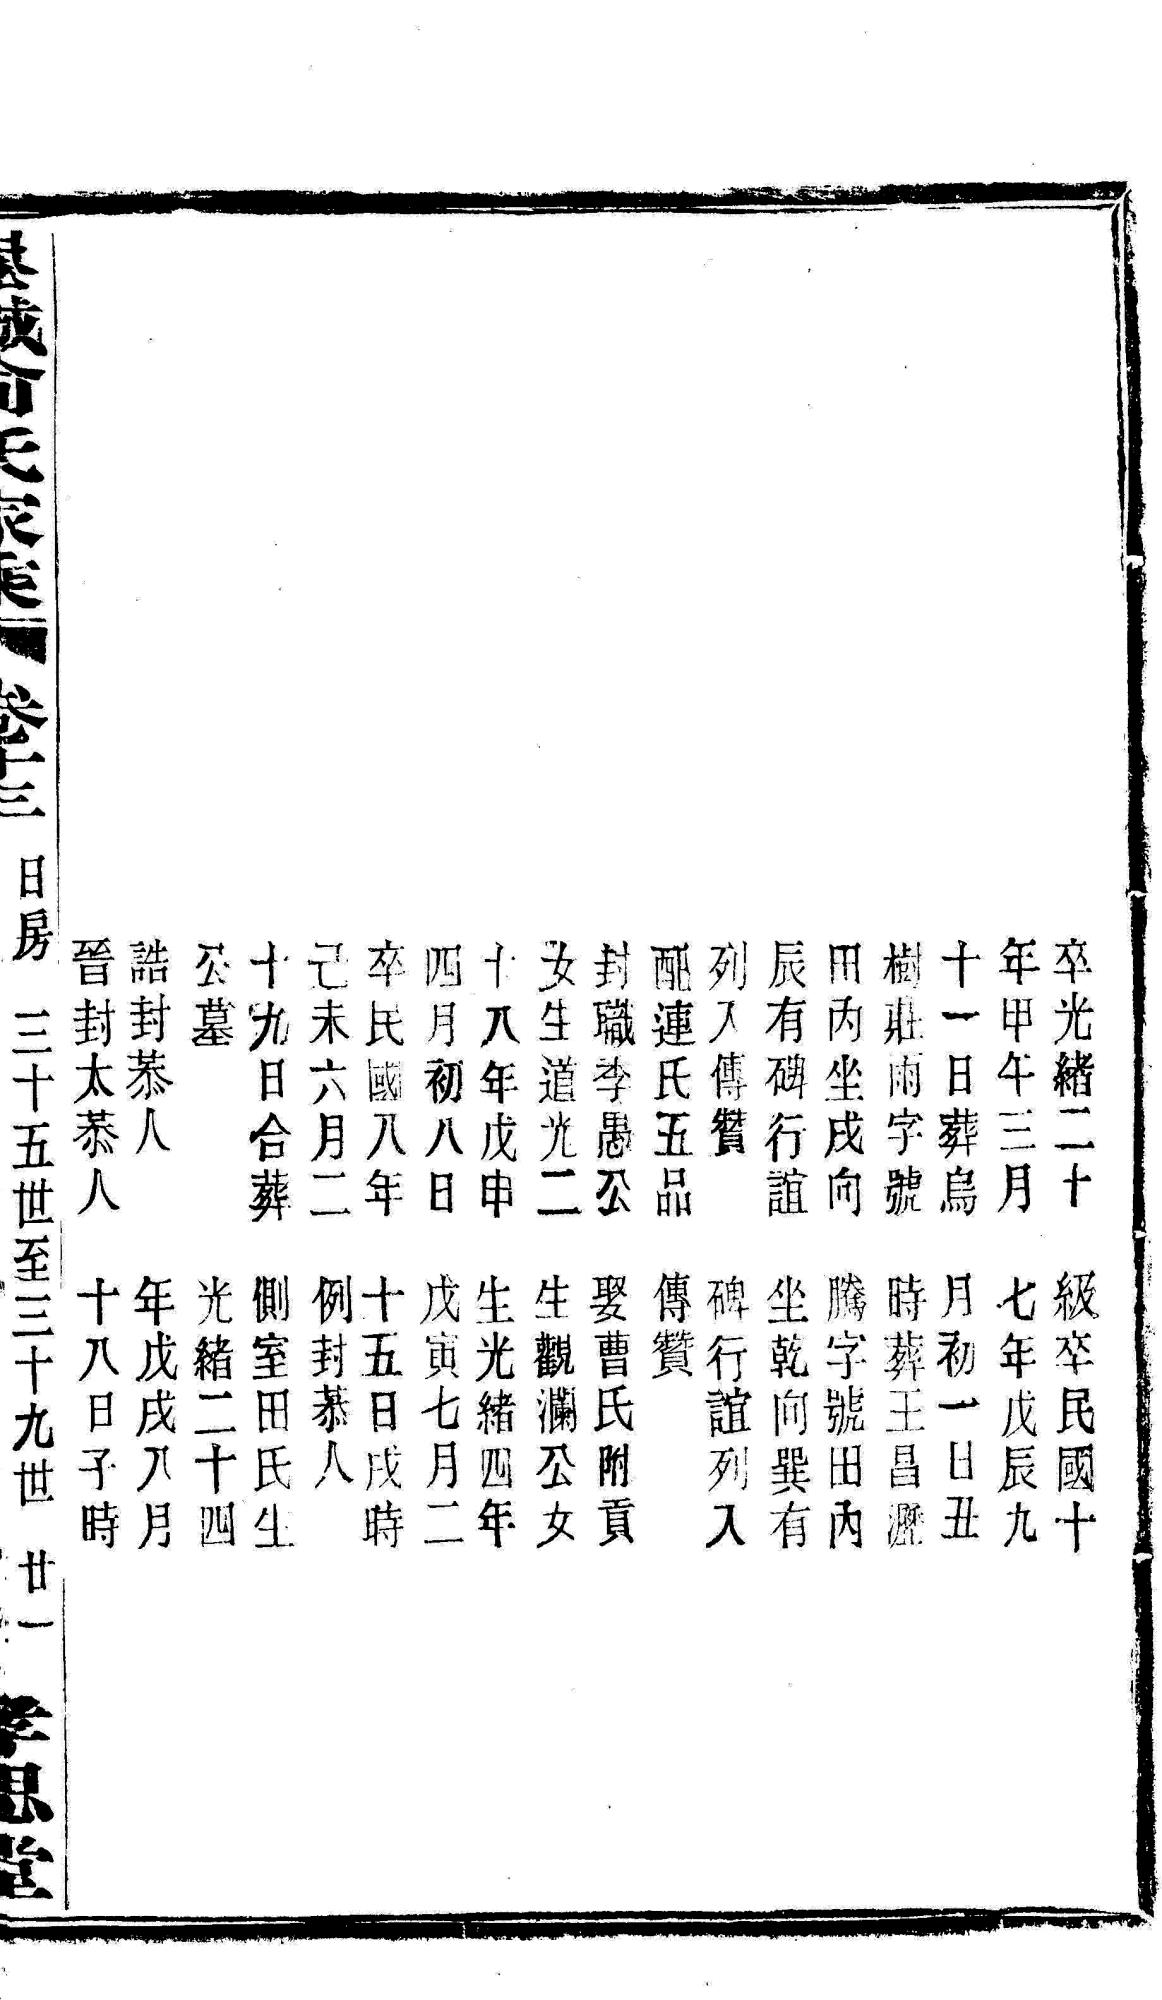 卒光緒二十
年甲午三月
十一日葬烏
樹莊雨字號
田內坐戌向
辰有碑行誼
列入傳贊
配連氏五品
封職李愚公
女生道光二
十八年戊申
四月初八日
卒民國八年
己未六月二
十九日合葬
公墓
誥封恭人
晉封太恭人
級卒民國十
七年戊辰九
月初一日丑
時葬王昌瀝
騰字號田內
坐乾向巽有
碑行誼列入
傳贊
娶曹氏附貢
生觀瀾公女
生光緒四年
戊寅七月二
十五日戌時
例封恭人
側室田氏生
光緒二十四
年戊戌八月
十八日子時
俞氏家乘 卷十三 日房 三十五世至三十九世 廿一 孝思堂